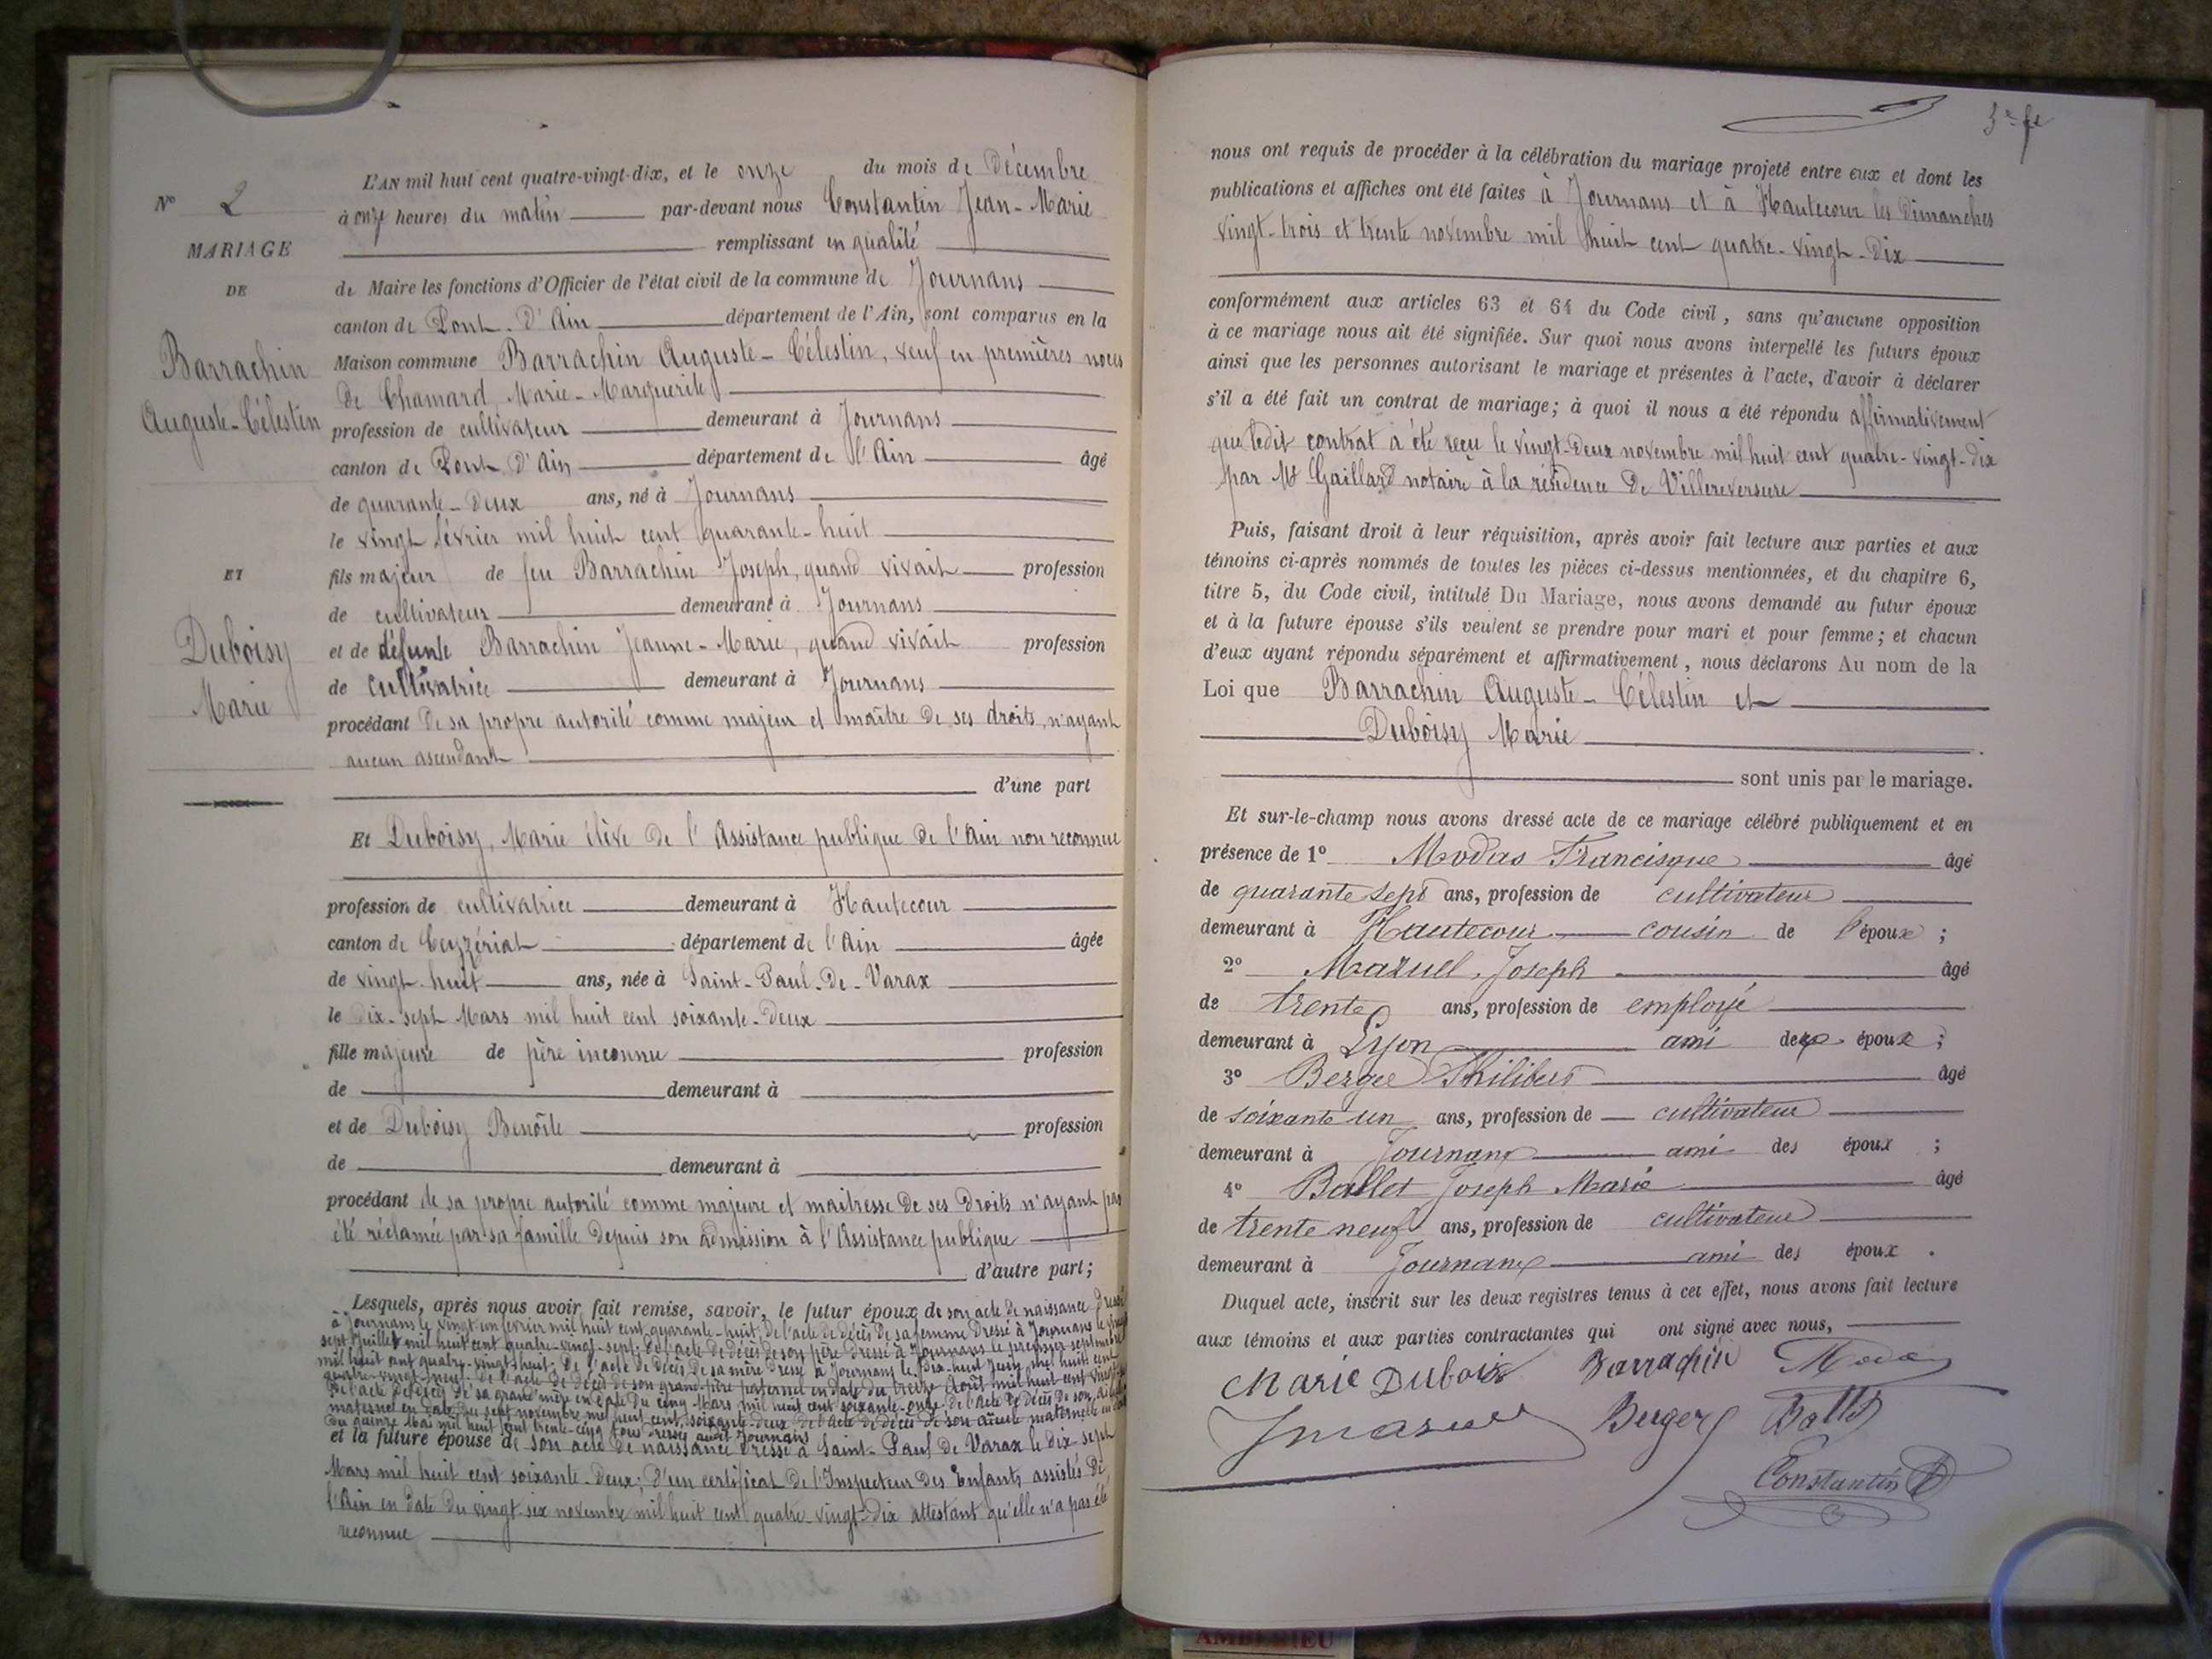 N° 2
MARIAGE
DE
Barrachin
Auguste-Célestin
ET
Duboisy
Marie
L'AN mil huit cent quatre-vingt-dix, et le onze du mois de Décembre
à onze heures du matin par-devant nous Constantin Jean-Marie
remplissant en qualité
de Maire les fonctions d'Officier de l'état civil de la commune de Journans
canton de Pont-d'Ain département de l'Ain, sont comparus en la
Maison commune Barrachin Auguste-Célestin, veuf en premières noces
de Chamard, Marie-Marguerite
profession de cultivateur demeurant à Journans
canton de Pont d'Ain département de l'Ain âgé
de quarante-deux ans, né à Journans
le vingt février mil huit cent quarante-huit
fils majeur de feu Barrachin Joseph, quand vivait profession
de cultivateur demeurant à Journans
et de défunte Barrachin Jeanne-Marie, quand vivait profession
de cultivatrice demeurant à Journans
procédant de sa propre autorité comme majeur et maître de ses droits, n'ayant
aucun ascendant
d'une part
Et Duboisy, Marie élève de l'Assistance publique de l'Ain non reconnue
profession de cultivatrice demeurant à Hautecour
canton de Ceyzériat département de l'Ain âgée
de vingt-huit ans, née à Saint-Paul-de-Varax
le dix-sept Mars mil huit cent soixante-deux
fille majeure de père inconnu profession
de demeurant à
et de Duboisy Benoîte profession
de demeurant à
procédant de sa propre autorité comme majeure et maitresse de ses droits n'ayant pas
été réclamée par sa famille depuis son admission à l'Assistance publique
d'autre part;
Lesquels, après nous avoir fait remise, savoir, le futur époux de son acte de naissance dressé
à Journans le vingt-un février mil huit cent quarante-huit; de l'acte de décès de sa femme dressé à Journans le
sept Juillet mil huit cent quatre-vingt-sept; de l'acte de décès de son père dressé à Journans le premier septembre
mil huit cent quatre-vingt-huit; de l'acte de décès de sa mère dressé à Journans le dix-huit Juin mil huit cent
quatre-vingt; de l'acte de décès de son grand-père paternel en date du treize Août mil huit cent
de l'acte de décès de sa grand'mère en date du cinq Mars mil huit cent soixante-onze; de l'acte de décès de son
maternel en date du sept novembre mil huit cent soixante-deux; de l'acte de décès de son aïeule maternelle en
du quinze Mai mil huit cent trente-cinq tous dressés audit Journans
et la future épouse de son acte de naissance dressé à Saint-Paul de Varax le dix sept
Mars mil huit cent soixante-deux; d'un certificat de l'Inspecteur des Enfants assistés de
l'Ain en date du vingt-six novembre mil huit cent quatre-vingt-dix attestant qu'elle n'a pas été
reconnue
nous ont requis de procéder à la célébration du mariage projeté entre eux et dont les
publications et affiches ont été faites à Journans et à Hautecour les Dimanches
vingt-trois et trente novembre mil huit cent quatre-vingt-dix
conformément aux articles 63 et 64 du Code civil, sans qu'aucune opposition
à ce mariage nous ait été signifiée. Sur quoi nous avons interpellé les futurs époux
ainsi que les personnes autorisant le mariage et présentes à l'acte, d'avoir à déclarer
s'il a été fait un contrat de mariage; à quoi il nous a été répondu affirmativement
que ledit contrat a été reçu le vingt-deux novembre mil huit cent quatre-vingt-dix
par Me Gaillard notaire à la résidence de Villereversure
Puis, faisant droit à leur réquisition, après avoir fait lecture aux parties et aux
témoins ci-après nommés de toutes les pièces ci-dessus mentionnées, et du chapitre 6,
titre 5, du Code civil, intitulé Du Mariage, nous avons demandé au futur époux
et à la future épouse s'ils veulent se prendre pour mari et pour femme; et chacun
d'eux ayant répondu séparément et affirmativement, nous déclarons Au nom de la
Loi que Barrachin Auguste-Célestin et
Duboisy Marie
sont unis par le mariage.
Et sur-le-champ nous avons dressé acte de ce mariage célébré publiquement et en
présence de 1° Modas Francisque âgé
de quarante sept ans, profession de cultivateur
demeurant à Hautecour cousin de l'époux;
2° Mazuel, Joseph âgé
de trente ans, profession de employé
demeurant à Lyon ami de époux;
3° Berger Philibert âgé
de soixante un ans, profession de cultivateur
demeurant à Journans ami des époux;
4° Ballet Joseph Marie âgé
de trente neuf ans, profession de cultivateur
demeurant à Journans ami des époux.
Duquel acte, inscrit sur les deux registres tenus à cet effet, nous avons fait lecture
aux témoins et aux parties contractantes qui ont signé avec nous,
Marie Dubois Barrachin Modas
JMazuel Berger Ballet
Constantin
AMBERIEU